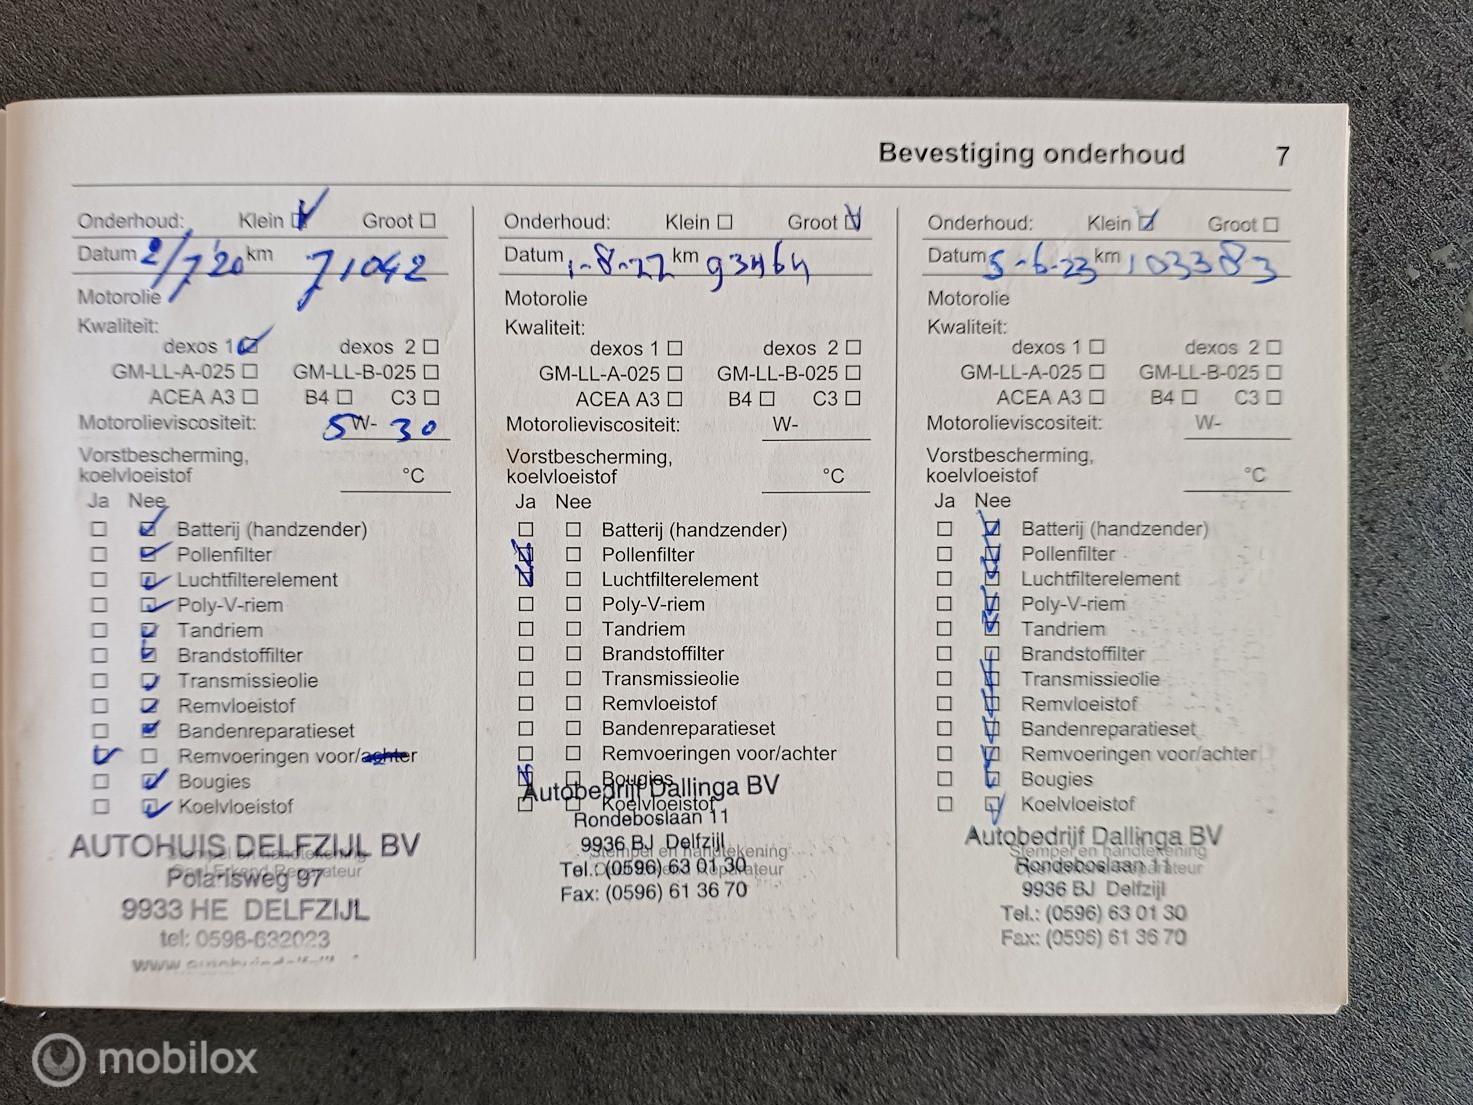 Bevestiging onderhoud 7
Onderhoud: Klein Groot
Datum 2/7'20 km 71042
Motorolie
Kwaliteit:
dexos 1 dexos 2
GM-LL-A-025 GM-LL-B-025
ACEA A3 B4 C3
Motorolieviscositeit: 5W- 30
Vorstbescherming,
koelvloeistof °C
Ja Nee
Batterij (handzender)
Pollenfilter
Luchtfilterelement
Poly-V-riem
Tandriem
Brandstoffilter
Transmissieolie
Remvloeistof
Bandenreparatieset
Remvoeringen voor/achter
Bougies
Koelvloeistof
AUTOHUIS DELFZIJL BV
Stempel en handtekening
Polarisweg 97
9933 HE DELFZIJL
tel: 0596-632023
Onderhoud: Klein Groot
Datum 1-8-22 km 93464
Motorolie
Kwaliteit:
dexos 1 dexos 2
GM-LL-A-025 GM-LL-B-025
ACEA A3 B4 C3
Motorolieviscositeit: W-
Vorstbescherming,
koelvloeistof °C
Ja Nee
Batterij (handzender)
Pollenfilter
Luchtfilterelement
Poly-V-riem
Tandriem
Brandstoffilter
Transmissieolie
Remvloeistof
Bandenreparatieset
Remvoeringen voor/achter
Bougies
Autobedrijf Dallinga BV
Koelvloeistof
Rondeboslaan 11
9936 BJ Delfzijl
Stempel en handtekening
Tel.: (0596) 63 01 30
Fax: (0596) 61 36 70
Onderhoud: Klein Groot
Datum 5-6-23 km 103383
Motorolie
Kwaliteit:
dexos 1 dexos 2
GM-LL-A-025 GM-LL-B-025
ACEA A3 B4 C3
Motorolieviscositeit: W-
Vorstbescherming,
koelvloeistof °C
Ja Nee
Batterij (handzender)
Pollenfilter
Luchtfilterelement
Poly-V-riem
Tandriem
Brandstoffilter
Transmissieolie
Remvloeistof
Bandenreparatieset
Remvoeringen voor/achter
Bougies
Koelvloeistof
Autobedrijf Dallinga BV
Stempel en handtekening
Rondeboslaan 11
9936 BJ Delfzijl
Tel.: (0596) 63 01 30
Fax: (0596) 61 36 70
mobilox